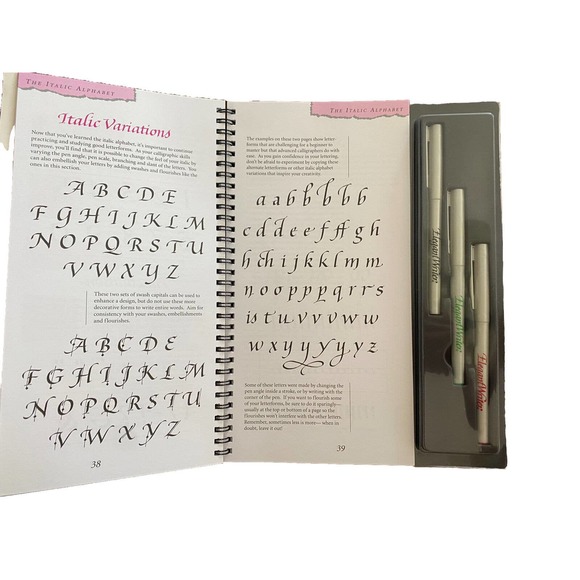 THE ITALIC ALPHABET
Italic Variations
Now that you've learned the italic alphabet, it's important to continue
practicing and studying good letterforms. As your calligraphic skills
improve, you'll find that it is possible to change the feel of your italic by
varying the pen angle, pen scale, branching and slant of the letters. You
can also embellish your letters by adding swashes and flourishes like the
ones in this section.
A B C D E
F G H I J K L M
N O P Q R S T U
V W X Y Z
These two sets of swash capitals can be used to
enhance a design, but do not use these more
decorative forms to write entire words. Aim for
consistency with your swashes, embellishments
and flourishes.
A B C D E
F G H I J K L M
N O P Q R S T U
V W X Y Z
38
THE ITALIC ALPHABET
The examples on these two pages show letter-
forms that are challenging for a beginner to
master but that advanced calligraphers do with
ease. As you gain confidence in your lettering,
don't be afraid to experiment by copying these
alternate letterforms or other italic alphabet
variations that inspire your creativity.
a a b b b b b
c d d e e f ff g h
h ch i j k k l m m
n o o p p p q r r s
is t u v v v w w
w x y y y y y z
Some of these letters were made by changing the
pen angle inside a stroke, or by writing with the
corner of the pen. If you want to flourish some
of your letterforms, be sure to do it sparingly—
usually at the top or bottom of a page so the
flourishes won't interfere with the other letters.
Remember, sometimes less is more—when in
doubt, leave it out!
39
Elegant Writer
Elegant Writer
Elegant Writer